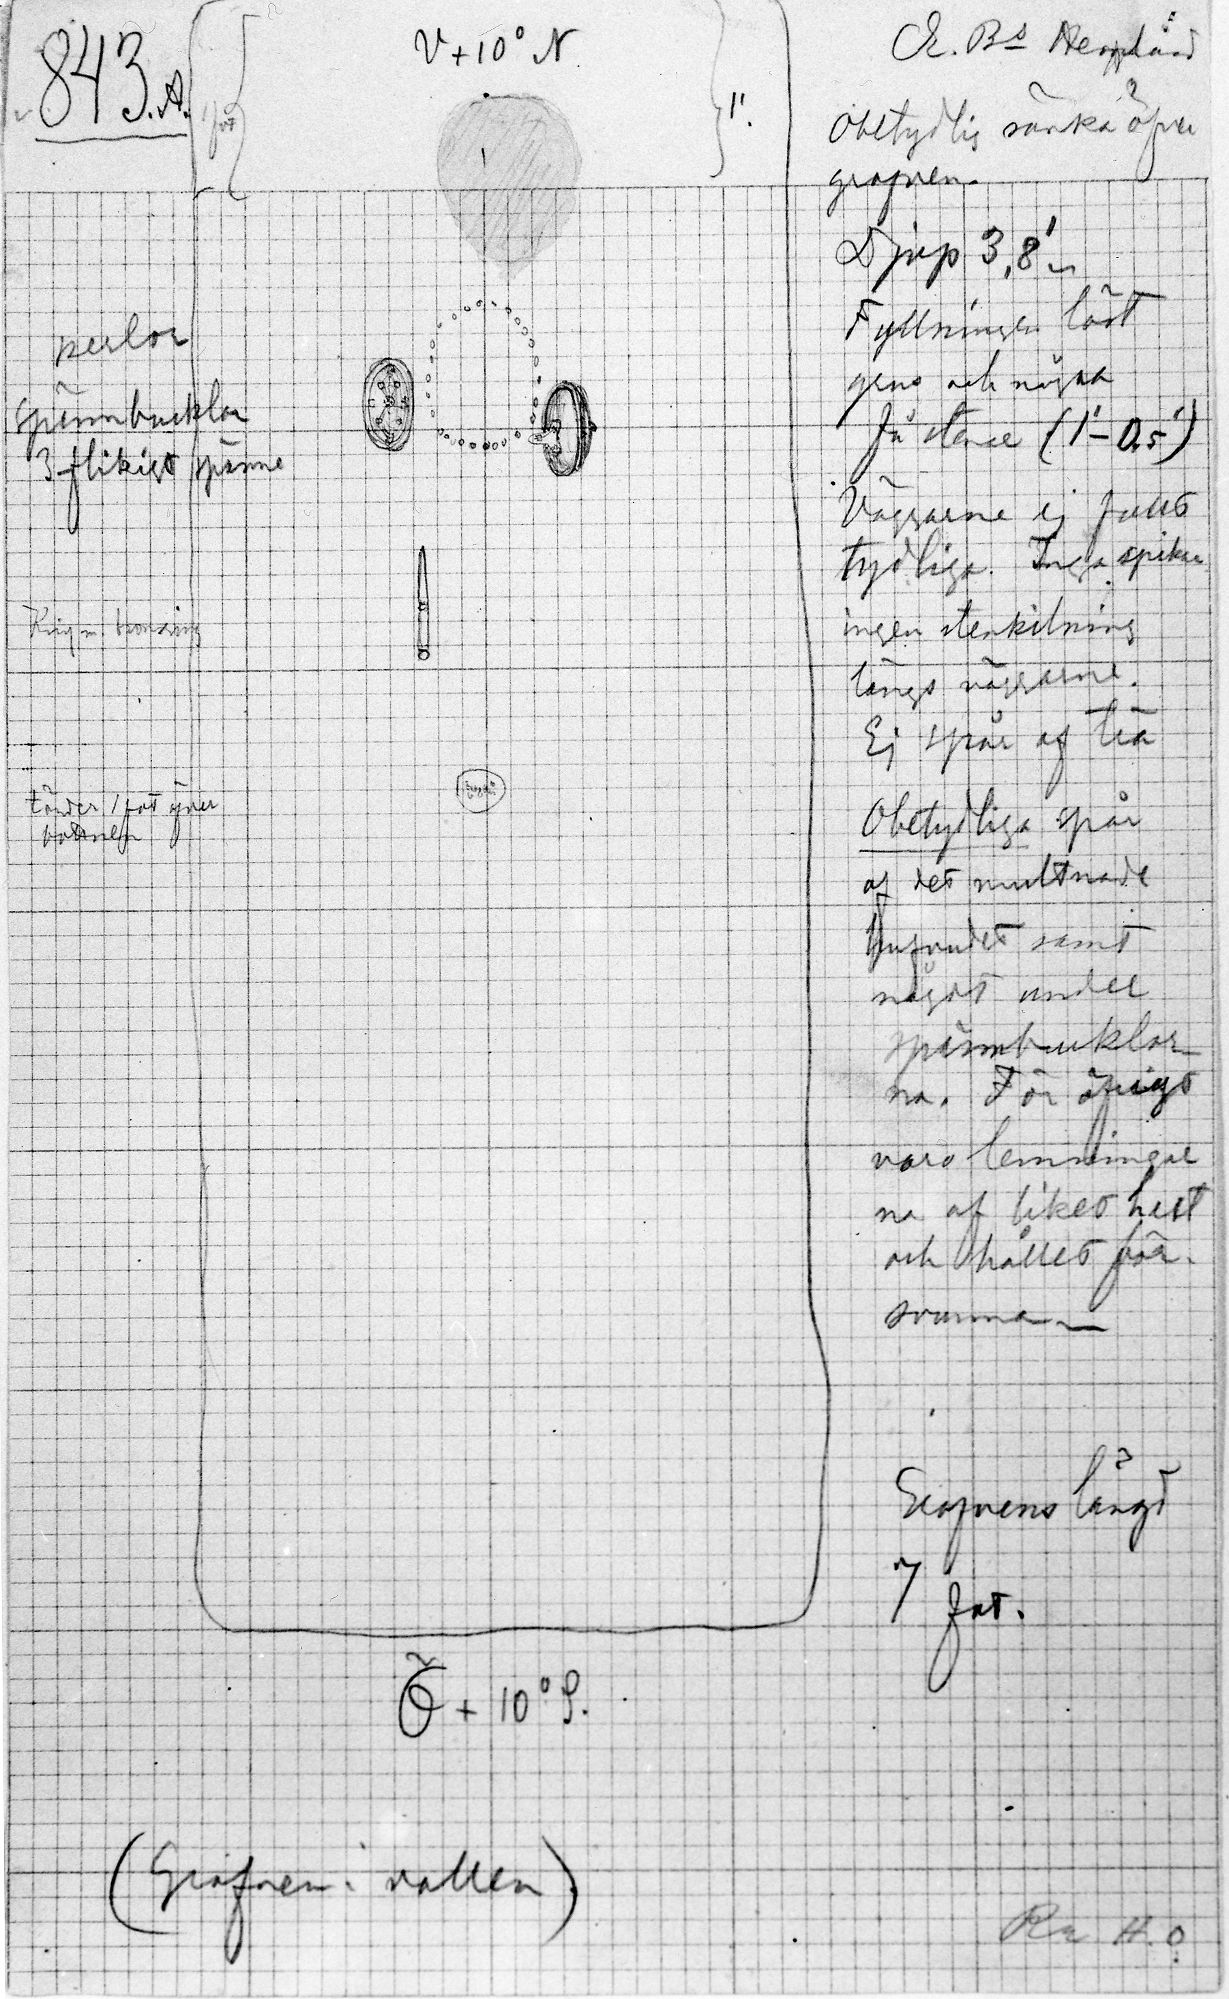 843.A.
V + 10° N
1 fot
1'.
Ö. Bs
Obetydlig sänka öfver
grafven.
Djup 3,8'
Fyllningen löst
grus och några
få stenar (1'-0.5')
Väggarne ej fullt
tydliga. Inga spikar
ingen stenkilning
längs väggarne.
Ej spår af trä
Obetydliga spår
af det multnade
hufvudet samt
något under
spännbucklor
na. För öfrigt
voro lemningar
na af liket helt
och hållet för-
svunna
Grafvens längd
7 fot.
perlor
spännbucklor
3-flikigt spänne
Kniv m. bronsring
tänder 1 fot öfver
bottnen
Ö + 10° S.
(Grafven i vallen)
H.O.